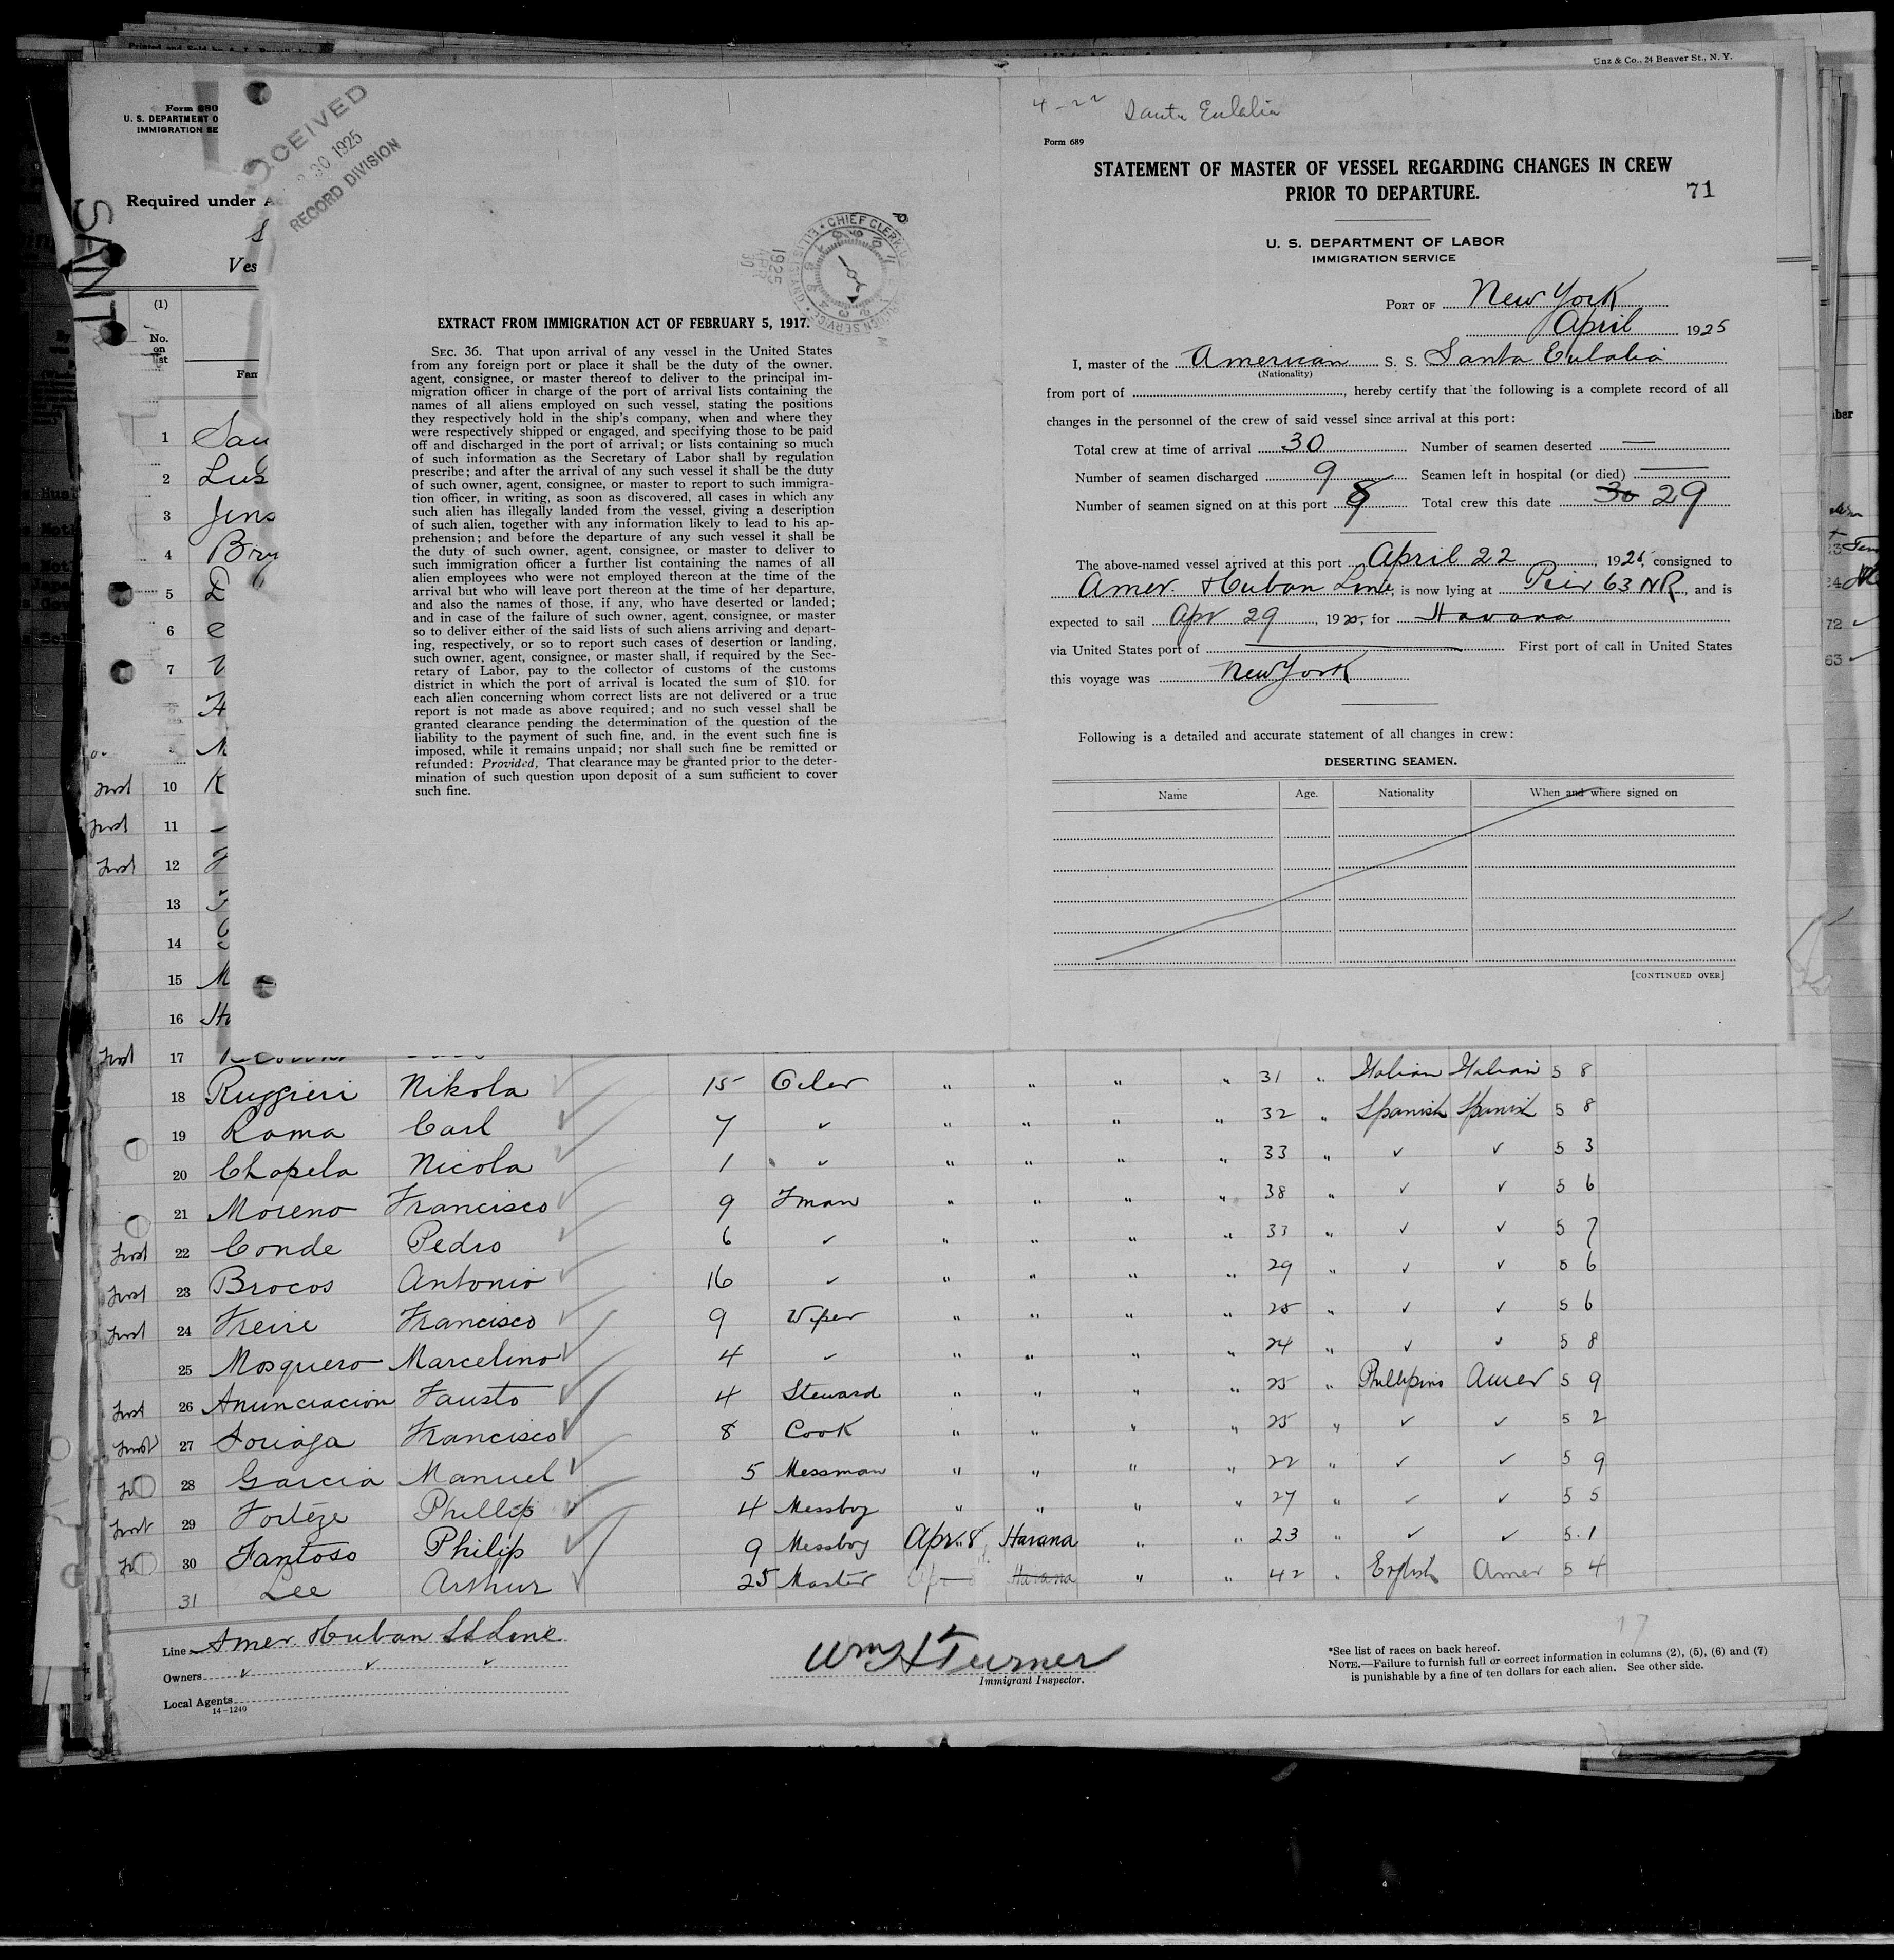 Unz & Co., 24 Beaver St., N. Y.
Form 680
U. S. DEPARTMENT O
IMMIGRATION SE
RECEIVED
30 1925
RECORD DIVISION
Required under A
SANT
Ves
(1)
No.
on
list
Fam
1925
APR
30
CHIEF CLERK U.S.
IMMIGRATION SERVICE
ELLIS ISLAND
EXTRACT FROM IMMIGRATION ACT OF FEBRUARY 5, 1917.
SEC. 36. That upon arrival of any vessel in the United States
from any foreign port or place it shall be the duty of the owner,
agent, consignee, or master thereof to deliver to the principal im-
migration officer in charge of the port of arrival lists containing the
names of all aliens employed on such vessel, stating the positions
they respectively hold in the ship's company, when and where they
were respectively shipped or engaged, and specifying those to be paid
off and discharged in the port of arrival; or lists containing so much
of such information as the Secretary of Labor shall by regulation
prescribe; and after the arrival of any such vessel it shall be the duty
of such owner, agent, consignee, or master to report to such immigra-
tion officer, in writing, as soon as discovered, all cases in which any
such alien has illegally landed from the vessel, giving a description
of such alien, together with any information likely to lead to his ap-
prehension; and before the departure of any such vessel it shall be
the duty of such owner, agent, consignee, or master to deliver to
such immigration officer a further list containing the names of all
alien employees who were not employed thereon at the time of the
arrival but who will leave port thereon at the time of her departure,
and also the names of those, if any, who have deserted or landed;
and in case of the failure of such owner, agent, consignee, or master
so to deliver either of the said lists of such aliens arriving and depart-
ing, respectively, or so to report such cases of desertion or landing,
such owner, agent, consignee, or master shall, if required by the Sec-
retary of Labor, pay to the collector of customs of the customs
district in which the port of arrival is located the sum of $10. for
each alien concerning whom correct lists are not delivered or a true
report is not made as above required; and no such vessel shall be
granted clearance pending the determination of the question of the
liability to the payment of such fine, and, in the event such fine is
imposed, while it remains unpaid; nor shall such fine be remitted or
refunded: Provided, That clearance may be granted prior to the deter-
mination of such question upon deposit of a sum sufficient to cover
such fine.
4-22 Santa Eulalia
Form 689
STATEMENT OF MASTER OF VESSEL REGARDING CHANGES IN CREW
PRIOR TO DEPARTURE.
71
U. S. DEPARTMENT OF LABOR
IMMIGRATION SERVICE
PORT OF New York
April 1925
I, master of the American S. S. Santa Eulalia
(Nationality)
from port of , hereby certify that the following is a complete record of all
changes in the personnel of the crew of said vessel since arrival at this port:
Total crew at time of arrival 30 Number of seamen deserted —
Number of seamen discharged 9 Seamen left in hospital (or died) —
Number of seamen signed on at this port 8 Total crew this date 30 29
The above-named vessel arrived at this port April 22, 1925, consigned to
Amer. & Cuban Line, is now lying at Peir 63 NR, and is
expected to sail Apr 29, 1925, for Havana
via United States port of — First port of call in United States
this voyage was New York
Following is a detailed and accurate statement of all changes in crew:
DESERTING SEAMEN.
Name Age. Nationality When and where signed on
[CONTINUED OVER]
1 Sau
2 Lus
3 Jens
4 Bry
5
6
7
10 K
11
12
13
14
15 M
16 Ho
17
18 Ruggieri Nikola 15 Oiler " " " " 31 " Italian Italian 5 8
19 Rama Carl 7 ✓ " " " " 32 " Spanish Spanish 5 8
20 Chapela Nicola 1 ✓ " " " " 33 " ✓ ✓ 5 3
21 Moreno Francisco 9 Fman " " " " 38 " ✓ ✓ 5 6
22 Conde Pedro 6 ✓ " " " " 33 " ✓ ✓ 5 7
23 Brocos Antonio 16 ✓ " " " " 29 " ✓ ✓ 5 6
24 Freire Francisco 9 Wiper " " " " 25 " ✓ ✓ 5 6
25 Mosquero Marcelino 4 ✓ " " " " 24 " ✓ ✓ 5 8
26 Anunciacion Fausto 4 Steward " " " " 25 " Phillipino Amer 5 9
27 Soriaga Francisco 8 Cook " " " " 25 " ✓ ✓ 5 2
28 Garcia Manuel 5 Messman " " " " 22 " ✓ ✓ 5 9
29 Forteze Phillip 4 Messboy " " " " 27 " ✓ ✓ 5 5
30 Fantoso Philip 9 Messboy Apr. 8 Havana " " 23 " ✓ ✓ 5 1
31 Lee Arthur 25 Master Havana " " 42 " English Amer 5 4
Line Amer. & Cuban SS Line
Owners ✓ ✓ ✓
Local Agents
14-1240
Wm H Turner
Immigrant Inspector.
17
*See list of races on back hereof.
NOTE.—Failure to furnish full or correct information in columns (2), (5), (6) and (7)
is punishable by a fine of ten dollars for each alien. See other side.